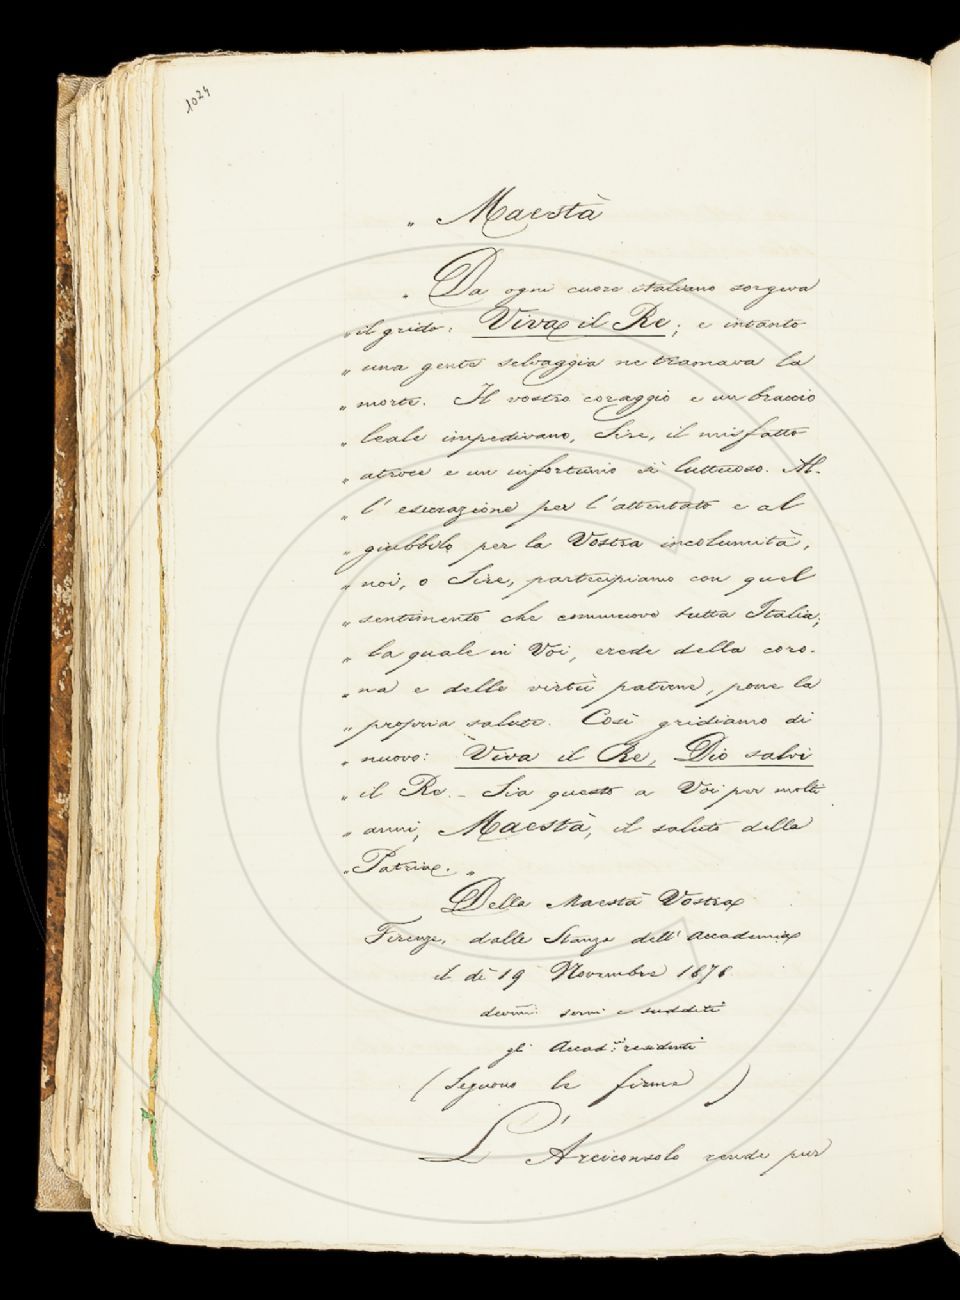 1024
„ Maestà
„ Da ogni cuore italiano sorgeva
„ il grido: Viva il Re; e intanto
„ una gente selvaggia ne tramava la
„ morte. Il vostro coraggio e un braccio
„ leale impedivano, Sire, il misfatto
„ atroce e un infortunio sì luttuoso. Al-
„ l'esecrazione per l'attentato e al
„ giubbilo per la Vostra incolumità,
„ noi, o Sire, partecipiamo con quel
„ sentimento che commuove tutta Italia;
„ la quale in Voi, erede della coro-
„ na e delle virtù paterne, pone la
„ propria salute. Così gridiamo di
„ nuovo: Viva il Re, Dio salvi
„ il Re. – Sia questo a Voi per molti
„ anni, Maestà, il saluto della
„ Patria. „
Della Maestà Vostra
Firenze, dalle Stanze dell'Accademia
il dì 19 Novembre 1878
devmi servi e sudditi
gli Accad.ci residenti
(Seguono le firme)
L'Arciconsolo rende pur